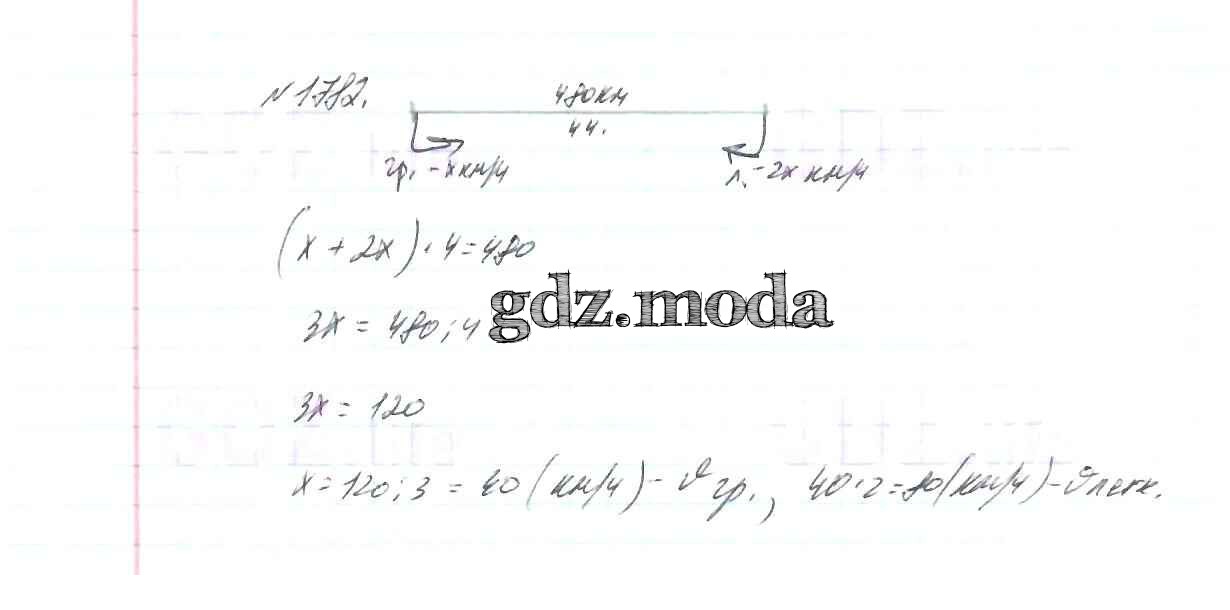 №1782.
480км
4ч.
гр. - х км/ч
л. - 2х км/ч
(х + 2х) · 4 = 480
3х = 480 : 4
gdz.moda
3х = 120
х = 120 : 3 = 40 (км/ч) - v гр., 40 · 2 = 80 (км/ч) - v легк.